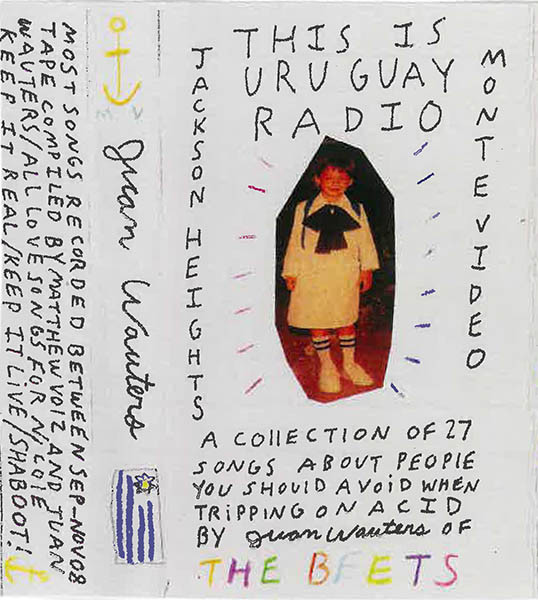 THIS IS
URUGUAY
RADIO
JACKSON HEIGHTS
MONTEVIDEO
A COllECTION OF 27
SONGS ABOUT PEOPLE
YOU SHOULD AVOiD WHEN
TRiPPiNG ON ACID
BY Juan Wauters OF
THE BEETS
M V
Juan Wauters
MOST SONGS RECORDED BETWEEN SEP-NOV08
TAPE COMPILED BY MATTHEW VOLZ AND JUAN
WAUTERS/ALL LOVE SONGS FOR NICOLE
KEEP IT REAL/KEEP IT LIVE/SHABOOT!